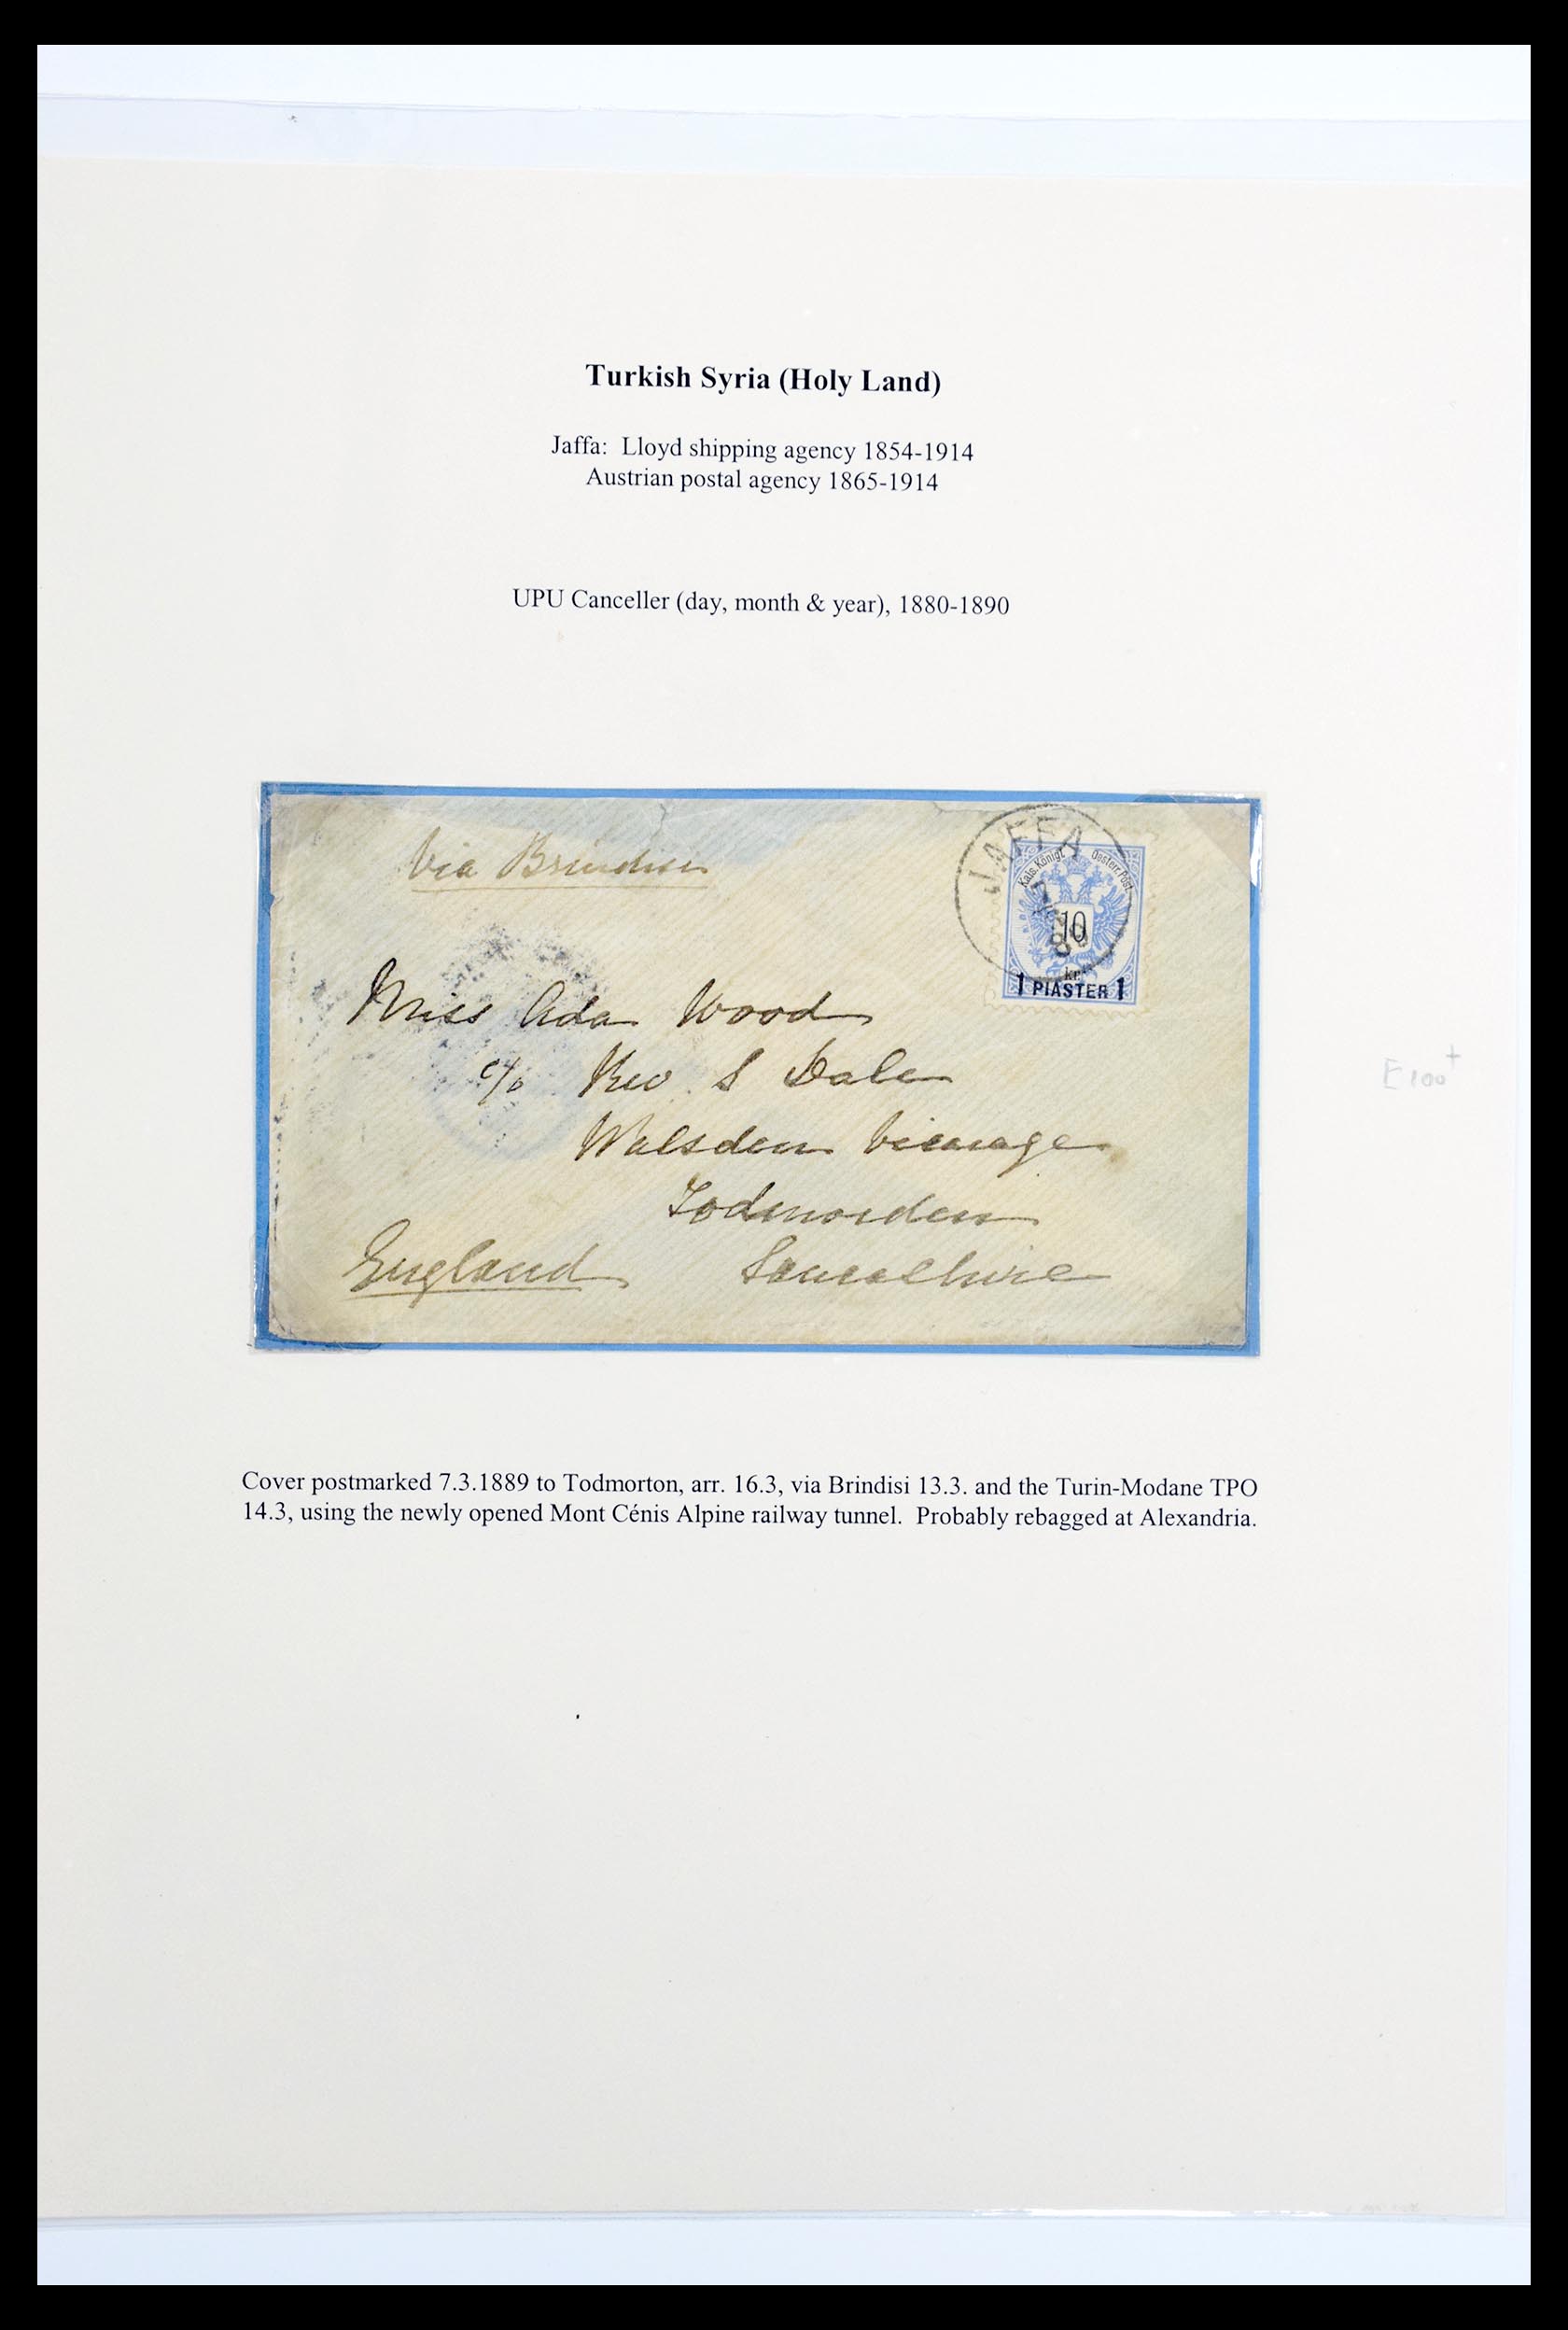 Turkish Syria (Holy Land)
Jaffa: Lloyd shipping agency 1854-1914
Austrian postal agency 1865-1914
UPU Canceller (day, month & year), 1880-1890
Via Brindisi
JAFFA
7
89
Kais. Königl. Oesterr. Post
10
kr
1 PIASTER 1
Miss Ada Wood
c/o Rev S Dale
Walsden Vicarage
Todmorden
England Lancashire
E100+
Cover postmarked 7.3.1889 to Todmorton, arr. 16.3, via Brindisi 13.3. and the Turin-Modane TPO
14.3, using the newly opened Mont Cénis Alpine railway tunnel. Probably rebagged at Alexandria.